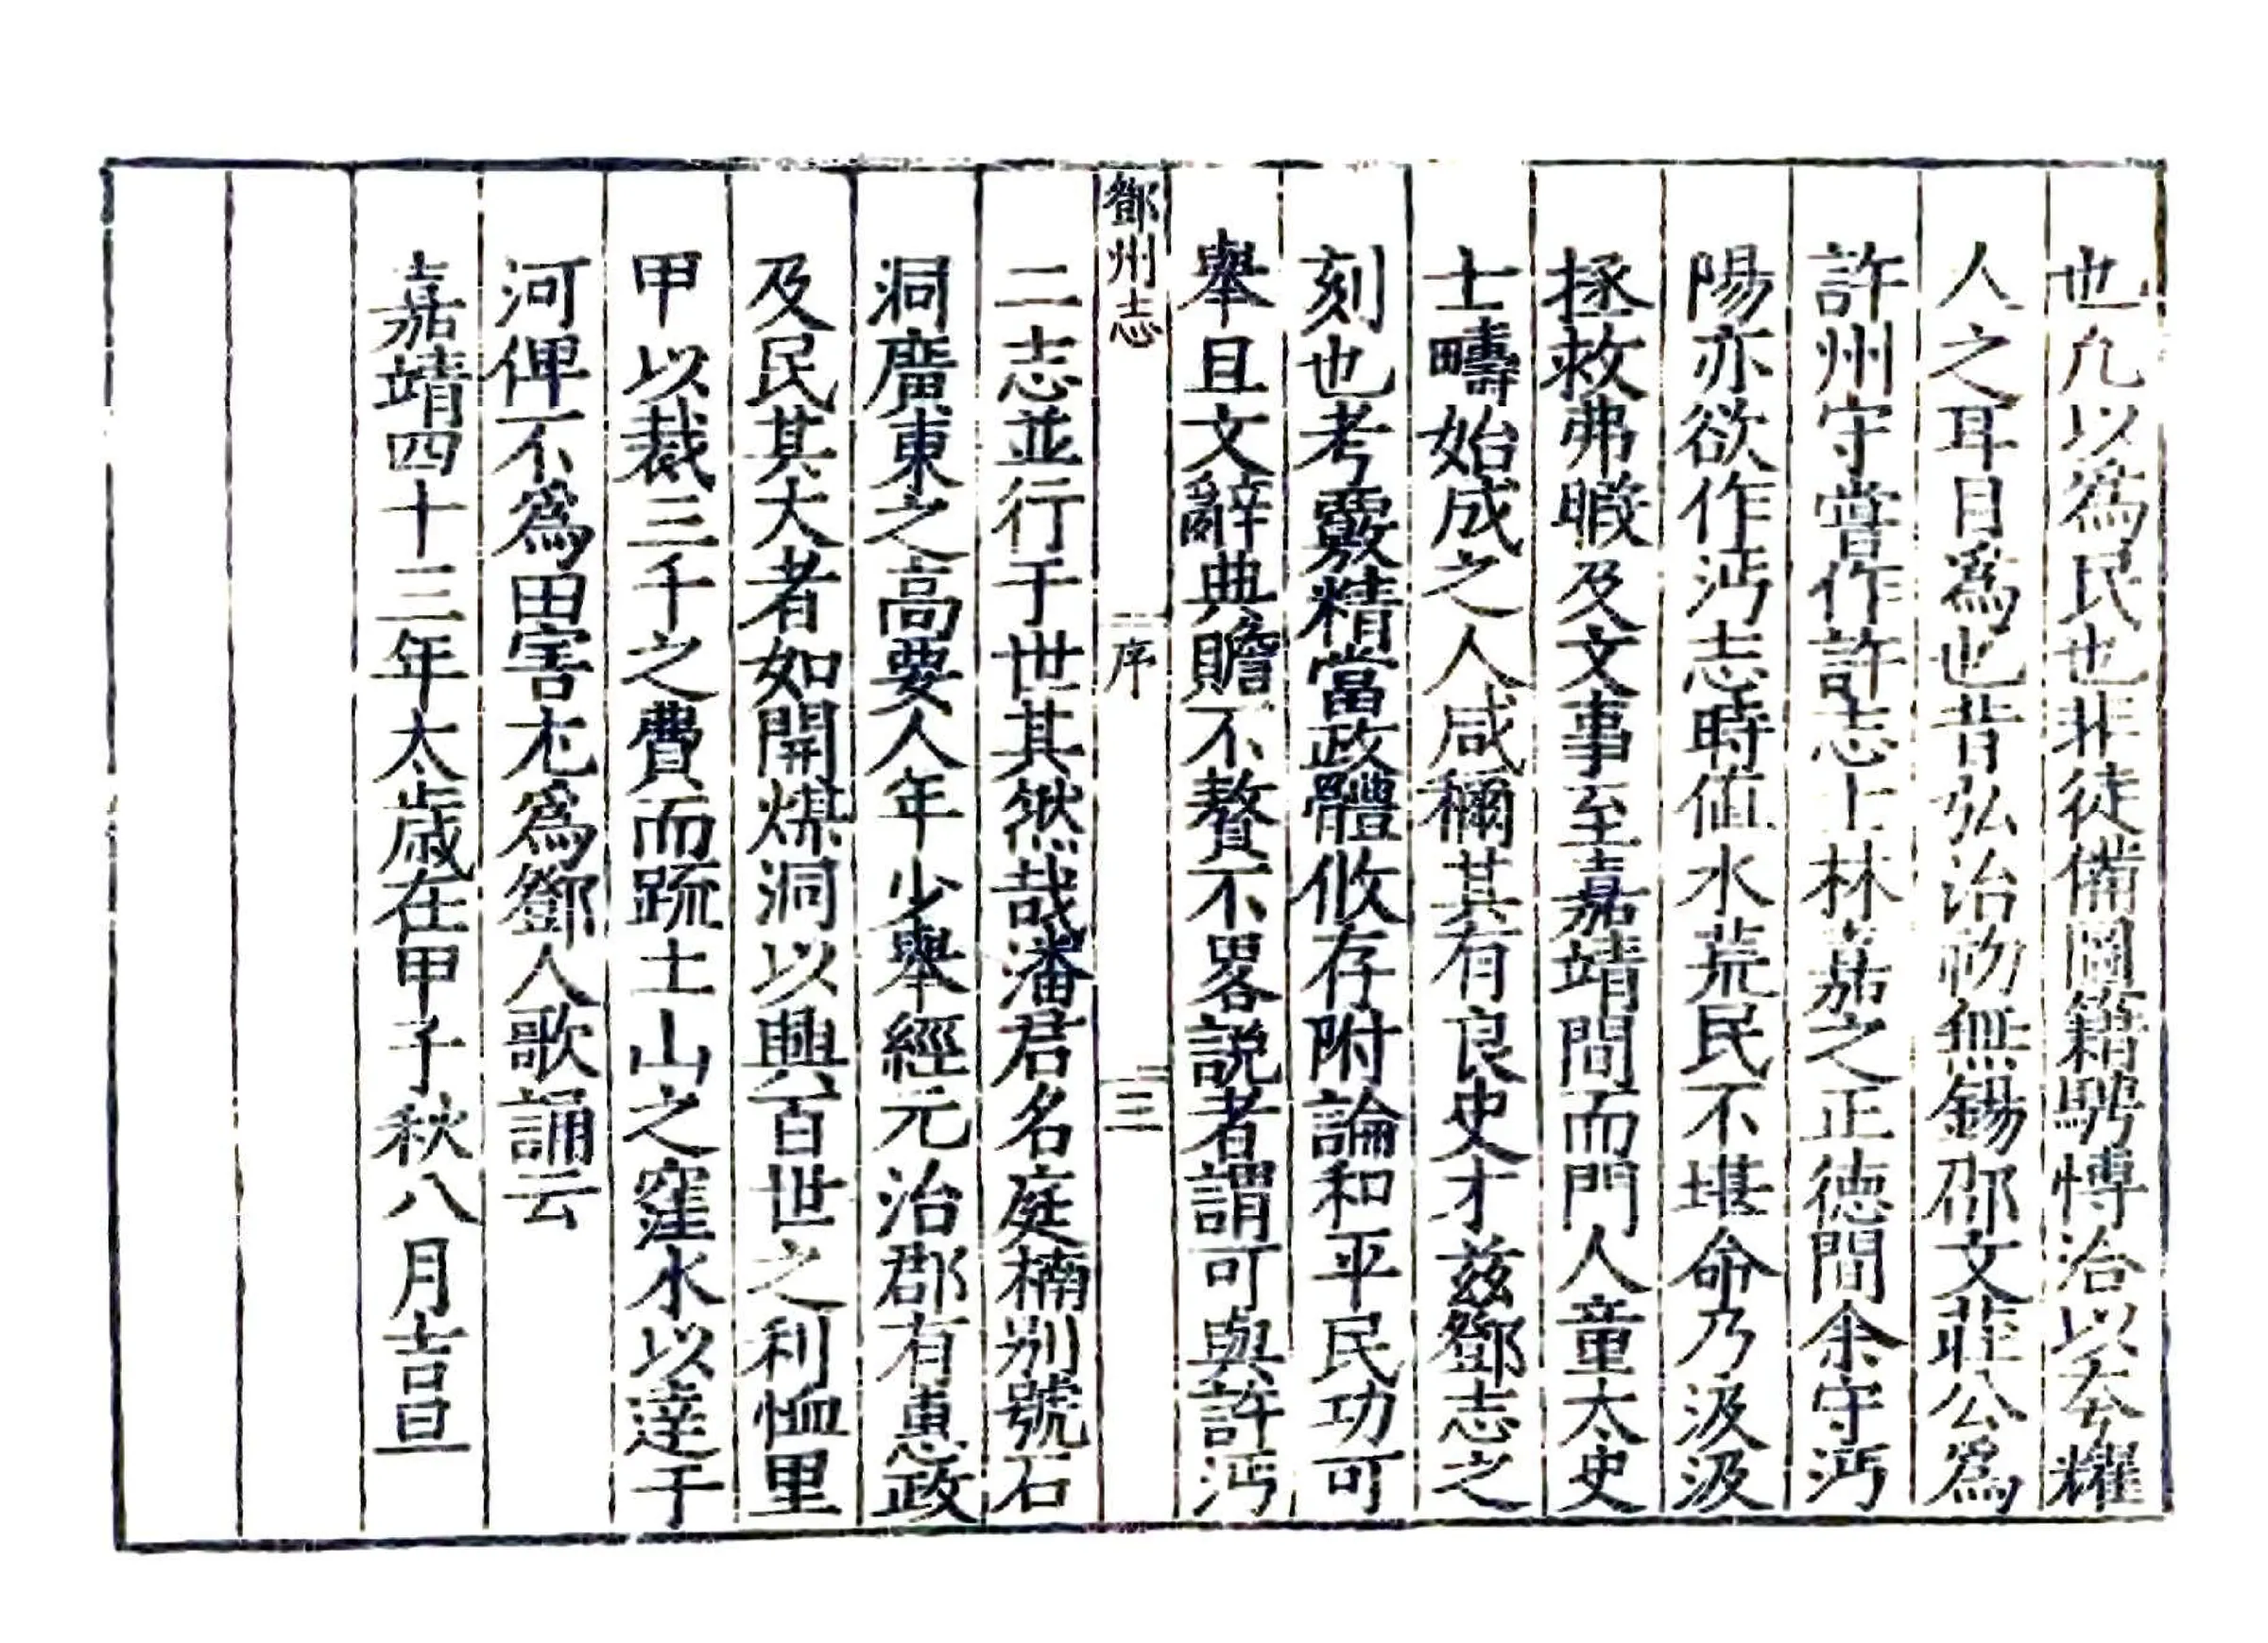 也凢以爲民也非徒備圖籍騁愽洽以夸耀
人之耳目爲也昔弘治初無錫邵文莊公爲
許州守嘗作許志士林嘉之正德間余守沔
陽亦欲作沔志時值水荒民不堪命乃汲汲
拯救弗暇及文事至嘉靖間而門人童太史
士疇始成之人咸稱其有良史才兹鄧志之
刻也考覈精當政體攸存附論和平民功可
舉且文辭典贍不贅不畧説者謂可與許沔
鄧州志 序 三
二志並行于世其然哉潘君名庭楠别號石
洞廣東之高要人年少舉經元治郡有惠政
及民其大者如開煤洞以興百世之利恤里
甲以裁三千之費而疏土山之窪水以達于
河俾不爲田害尤爲鄧人歌誦云
嘉靖四十三年太歲在甲子秋八月吉旦